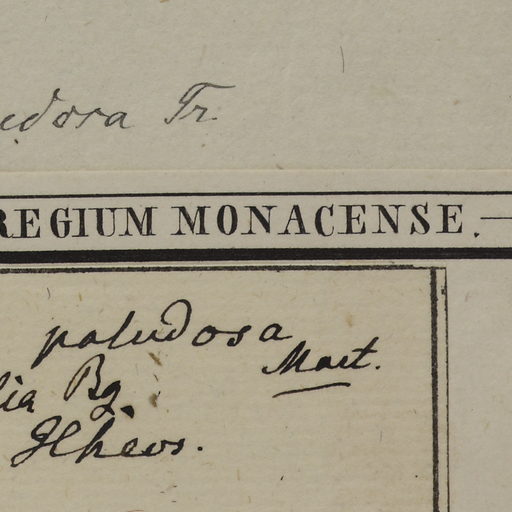 udosa Tr.
REGIUM MONACENSE.
paludosa
Mart.
lia Bg.
Ilheos.